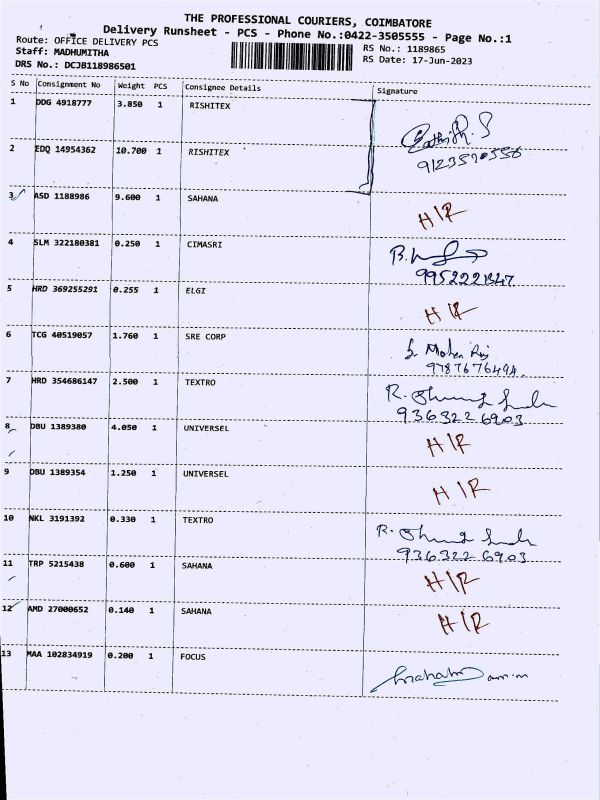 THE PROFESSIONAL COURIERS, COIMBATORE
Delivery Runsheet - PCS - Phone No.:0422-3505555 - Page No.:1
Route: OFFICE DELIVERY PCS
RS No.: 1189865
Staff: MADHUMITHA
RS Date: 17-Jun-2023
DRS No.: DCJB118986501
S No Consignment No Weight PCS Consignee Details Signature
1 DDG 4918777 3.850 1 RISHITEX
2 EDQ 14954362 10.700 1 RISHITEX
9123520556
3 ASD 1188986 9.600 1 SAHANA H/R
4 SLM 322180381 0.250 1 CIMASRI
9952221347
5 HRD 369255291 0.255 1 ELGI H/R
6 TCG 40519057 1.760 1 SRE CORP
9787676494
7 HRD 354686147 2.500 1 TEXTRO R.
936322 6903
8 DBU 1389380 4.050 1 UNIVERSEL H/R
9 DBU 1389354 1.250 1 UNIVERSEL H/R
10 NKL 3191392 0.330 1 TEXTRO R.
936322 6903
11 TRP 5215438 0.600 1 SAHANA H/R
12 AMD 27000652 0.140 1 SAHANA H/R
13 MAA 102834919 0.200 1 FOCUS